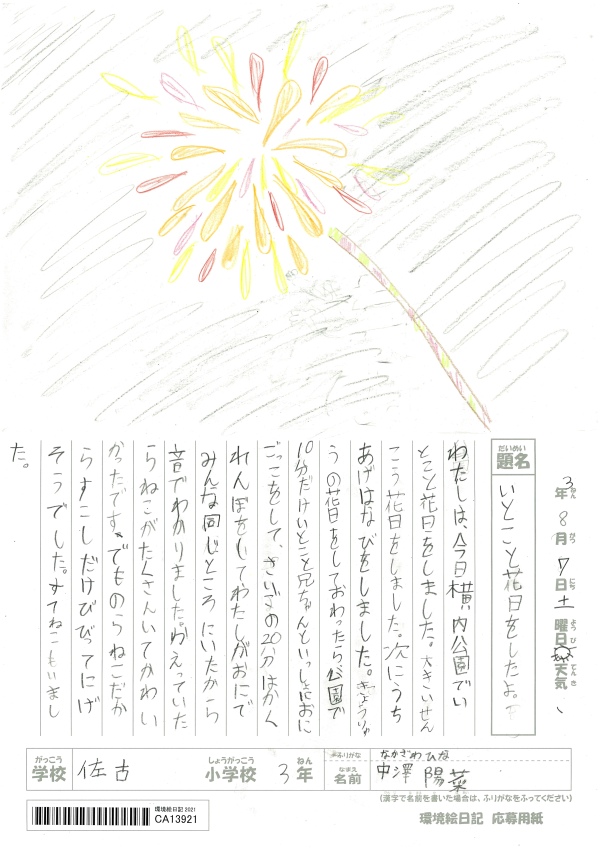 3年8月7日土曜日 天気
ねん がつ にち ようび てんき
だいめい
題名 いとこと花日をしたよ。
わたしは、今日横内公園でい
とこと花日をしました。大きいせん
こう花日をしました。次にうち
あげはなびをしました。きょうりゅ
うの花日をしておわったら公園で
10分だけいとこと兄ちゃんといっしょにおに
ごっこをして、さいごの20分はかく
れんぼをしてわたしがおにで
みんな同じところにいたから
音でわかりました。かえっていた
らねこがたくさんいてかわい
かったです。でものらねこだか
らすこしだけびびってにげ
そうでした。すてねこもいまし
た。
がっこう しょうがっこう ねん ふりがな なかざわひな
学校 佐古 小学校 3年 なまえ 名前 中澤 陽菜
(漢字で名前を書いた場合は、ふりがなをふってください)
環境絵日記 応募用紙
環境絵日記 2021
CA13921